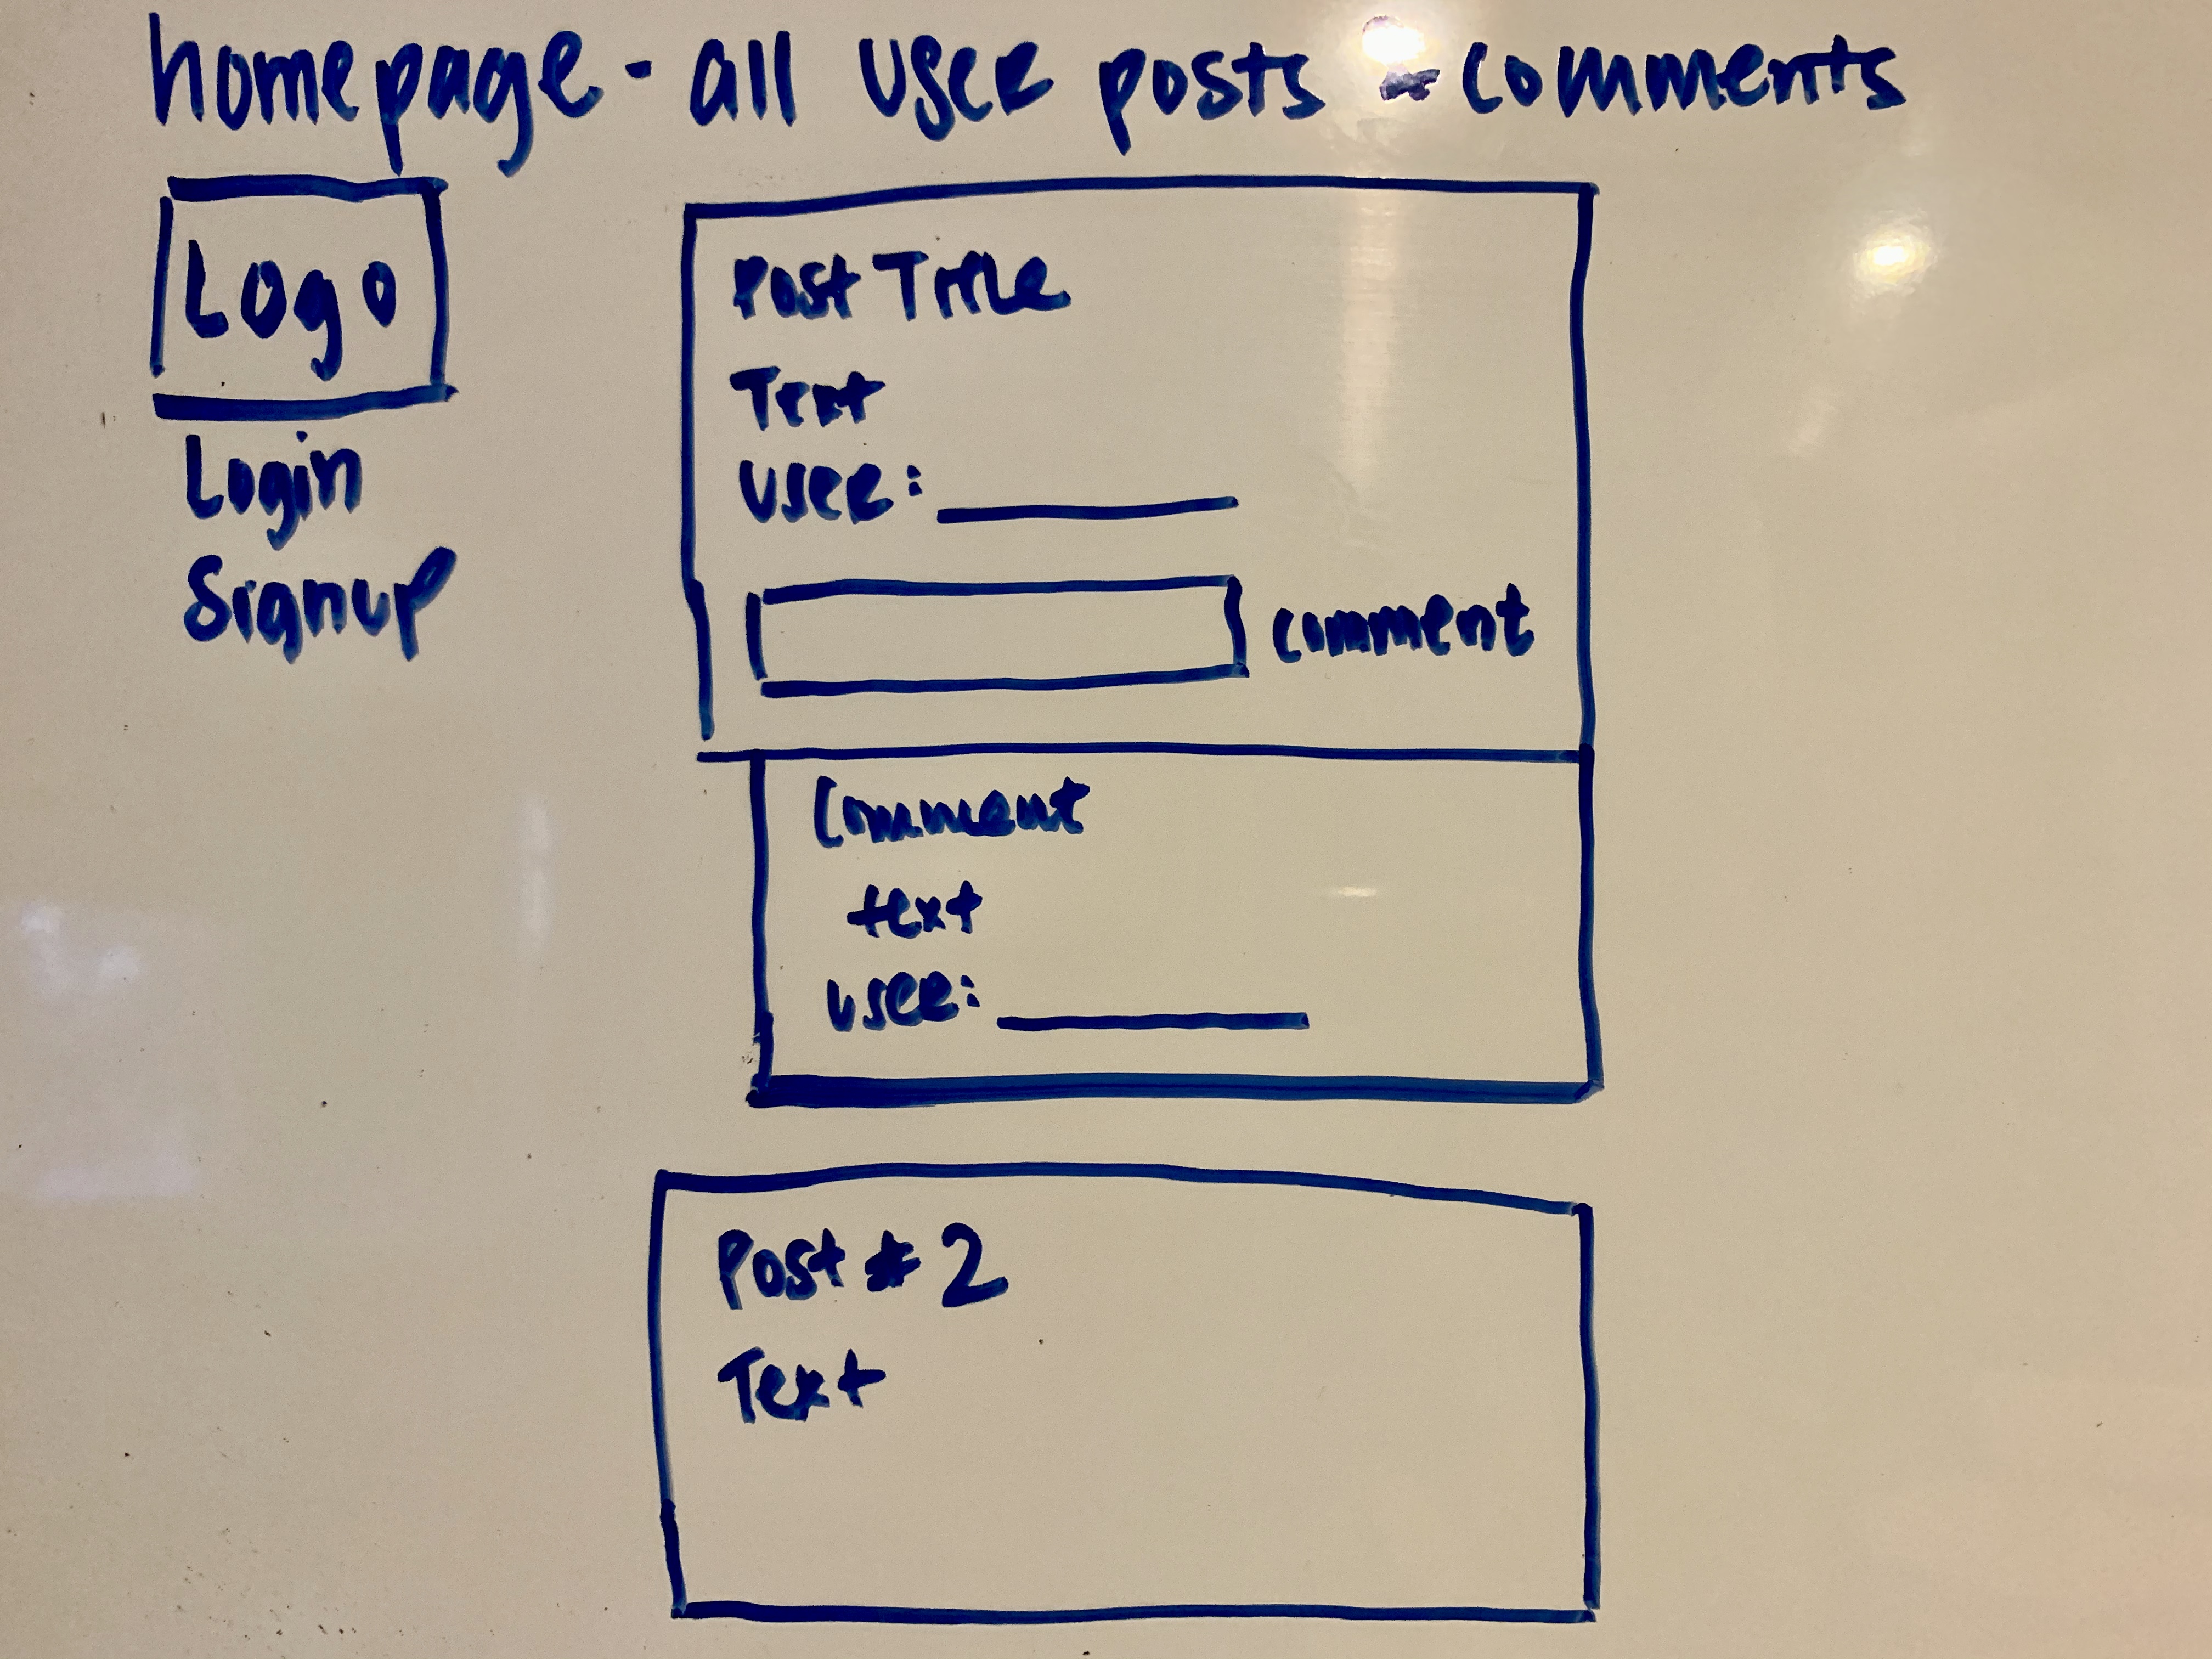 homepage - all user posts - comments
Logo
Login
Signup
Post Title
Text
user:
comment
Comment
text
user:
Post # 2
Text